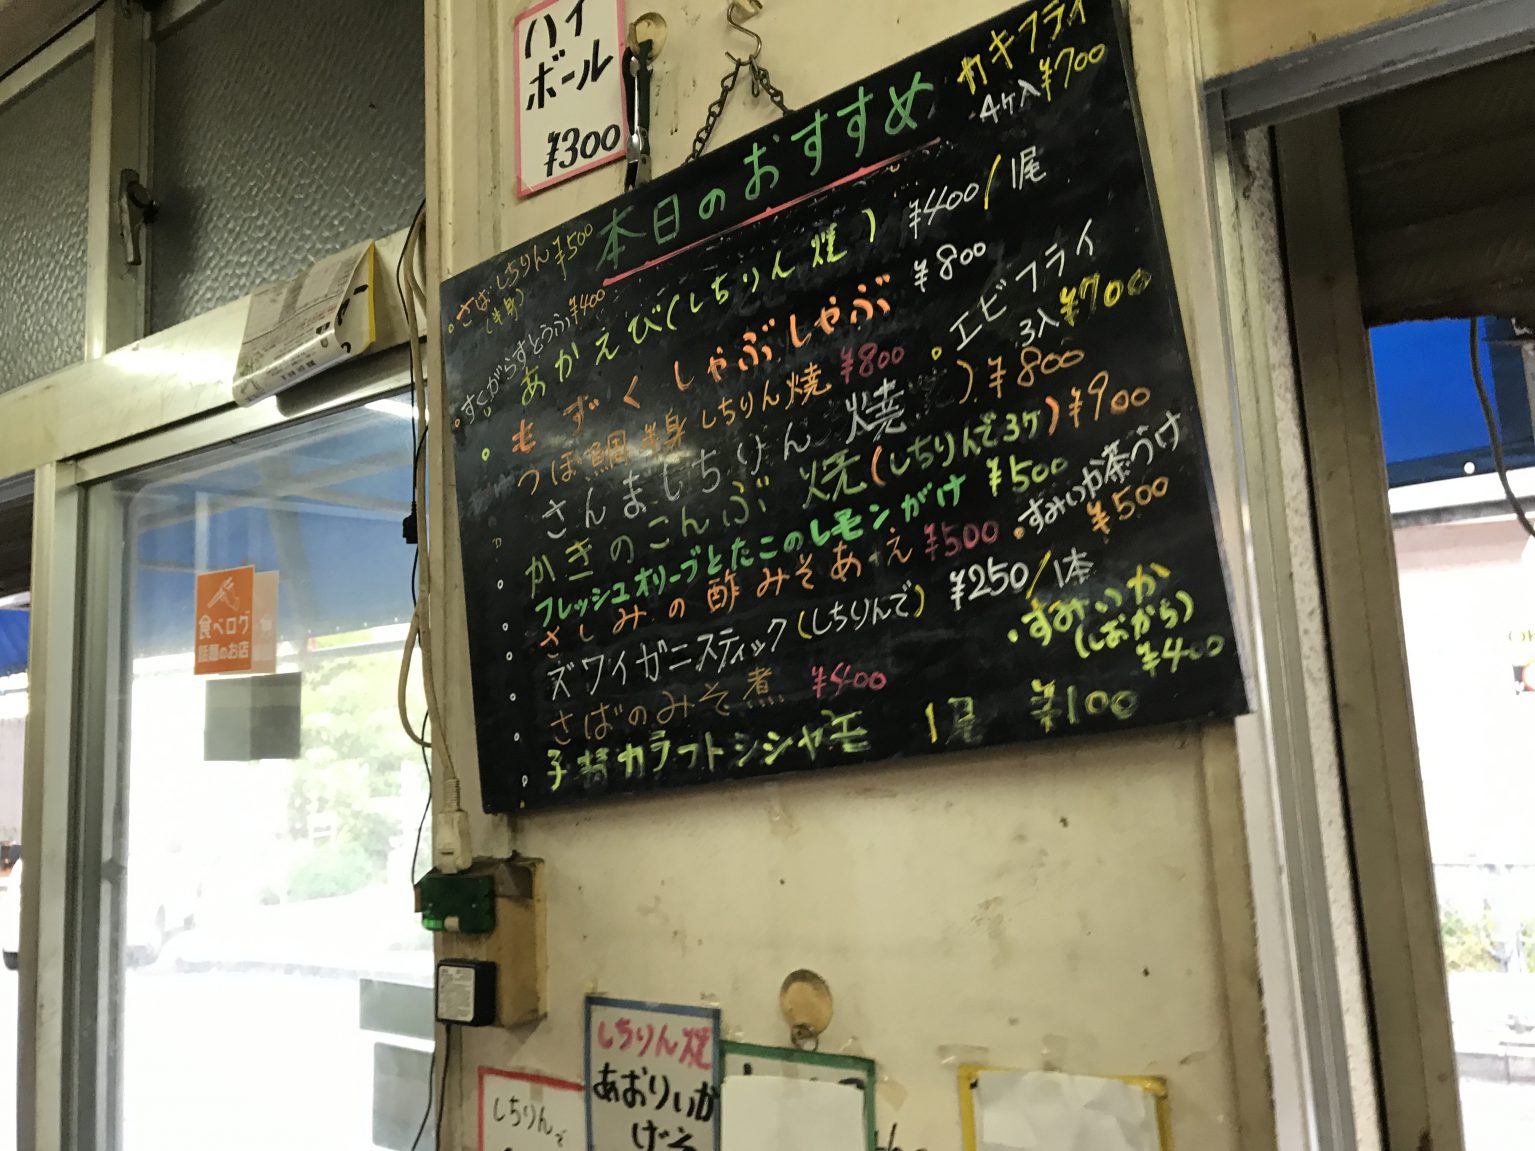 ハイ
ボール
¥300
本日のおすすめ
カキフライ
4ヶ入 ¥700
さばしちりん ¥500
(半身)
すくがらすとうふ ¥400
あかえび(しちりん焼) ¥400/1尾
もずくしゃぶしゃぶ ¥800
エビフライ
3入 ¥700
つぼ鯛半身しちりん焼 ¥800
さんましちりん焼 ) ¥800
かきのこんぶ焼(しちりんで3ケ) ¥900
フレッシュオリーブとたこのレモンがけ ¥500
すみいか茶づけ
¥500
さしみの酢みそあえ ¥500
ズワイガニスティック(しちりんで) ¥250/1本
すみいか
(しおから)
¥400
さばのみそ煮 ¥400
子持カラフトシシャモ 1尾 ¥100
食べログ
話題のお店
しちりん焼
あおりいか
げそ
しちりんで